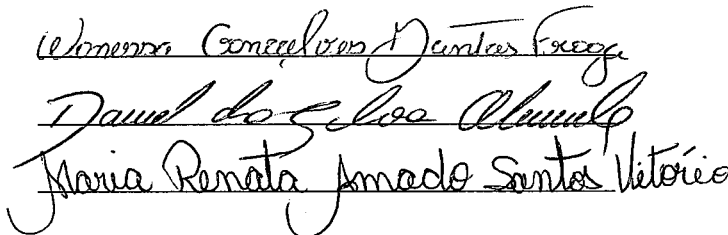 Wanessa Gonçalves Dantas Fraga
Daniel da Silva
Maria Renata Amado Santos Vitório